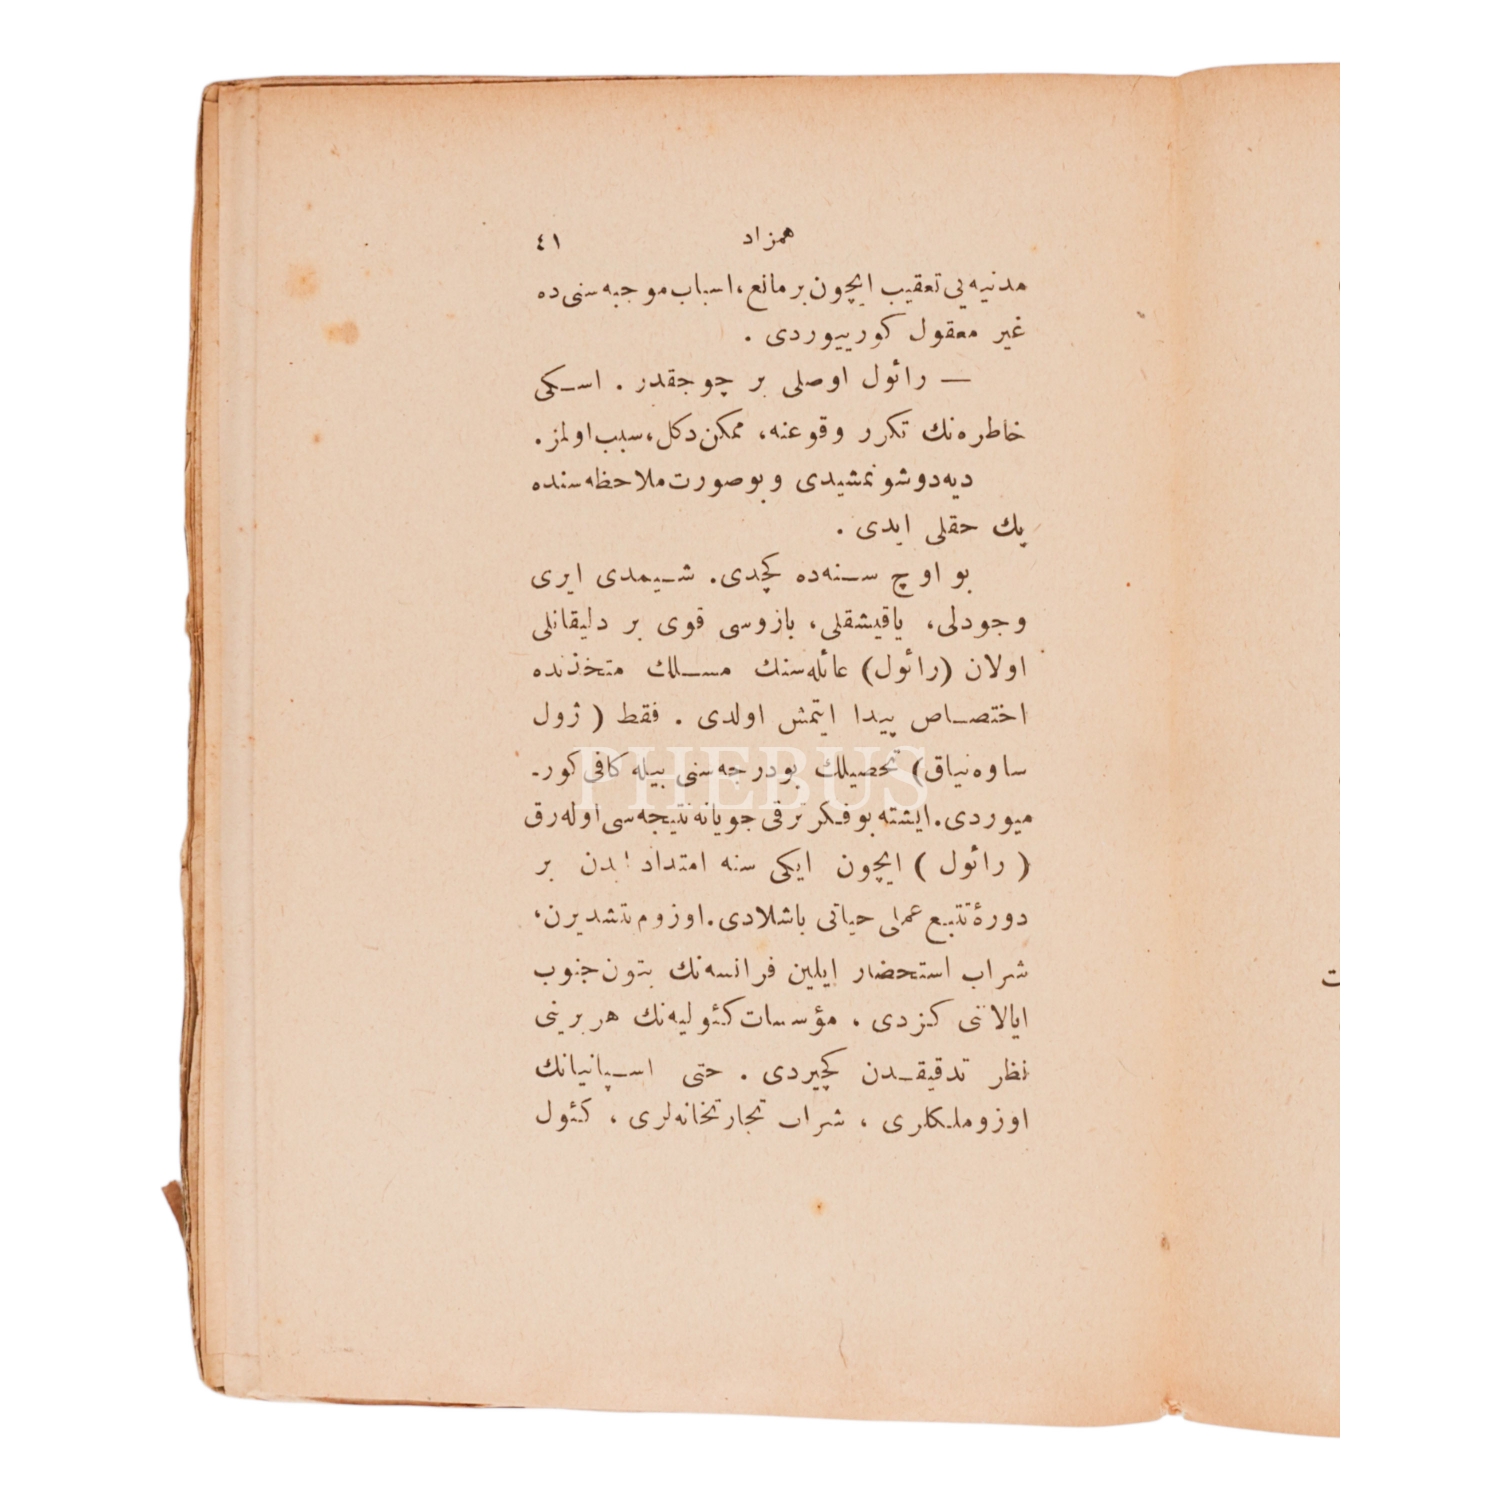 همزاد ٤١
مدنیه‌یی تعقیب ایچون بر مانع، اسباب موجبه‌سنی ده
غیر معقول کورییوردی .
— رائول اوصلی بر چوجقدر . اسکی
خاطره‌نك تکرر وقوعنه، ممکن دکل، سبب اولمز.
دیه دوشونمشیدی و بو صورت ملاحظه‌سنده
پك حقلی ایدی .
بو اوچ سنه‌ده کچدی. شیمدی ایری
وجودلی، یاقیشقلی، بازوسی قوی بر دلیقانلی
اولان (رائول) عائله‌سنك مسلك متخذنده
اختصاص پیدا ایتمش اولدی . فقط ( ژول
ساوه‌نیاق) تحصیلك بو درجه‌سنی بیله کافی کور-
میوردی. ایشته بو فکر ترقی جویانه نتیجه‌سی اوله‌رق
( رائول ) ایچون ایکی سنه امتداد ایدن بر
دورهٔ تتبع عملی حیاتی باشلادی. اوزوم یتشدیرن،
شراب استحضار ایلین فرانسه‌نك بتون جنوب
ایالاتنی کزدی ، مؤسسات کئولیه‌نك هر برینی
نظر تدقیقدن کچیردی . حتی اسپانیانك
اوزوملکلری ، شراب تجارتخانه‌لری ، کئول
PHEBUS
ت